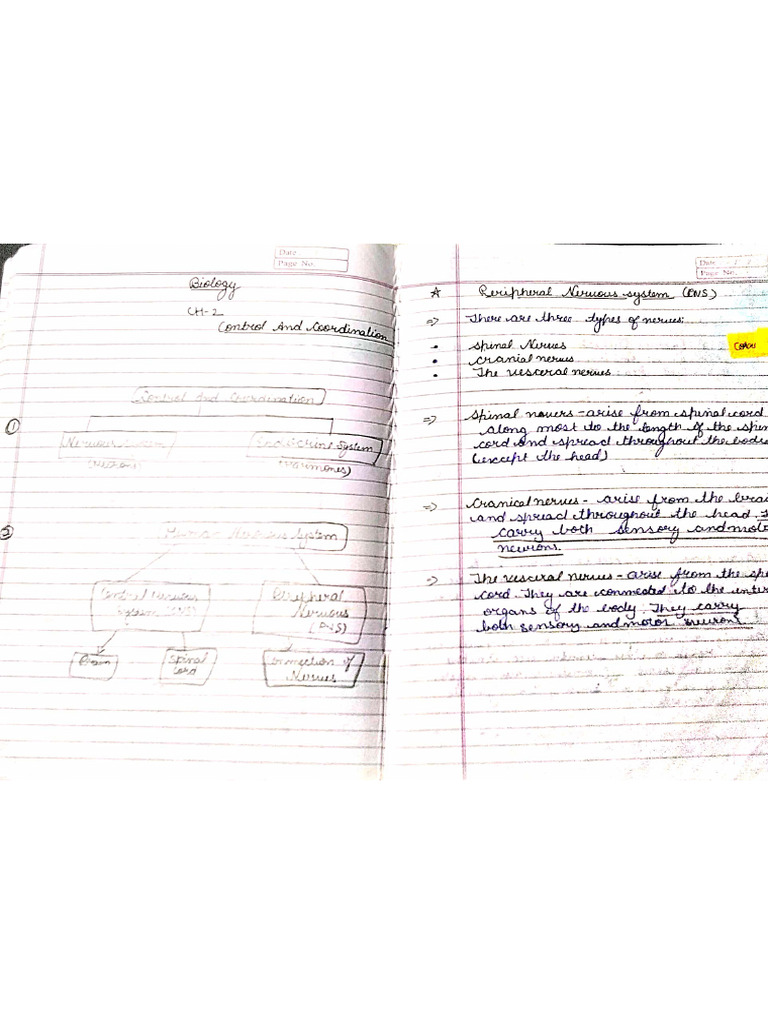 Date
Page No.
Biology
CH-2
Control And Coordination
Control And Coordination
①
Nervous System
Endocrine System
(Neurons)
(Hormones)
②
Human Nervous System
Central Nervous
System (CNS)
Peripheral
Nervous
(PNS)
Brain
Spinal
Cord
Connection of
Nerves
Date / /
Page No.
☆ Peripheral Nervous system (PNS)
⇒ There are three types of nerves:
• Spinal Nerves
• Cranial nerves
• The visceral nerves
⇒ Spinal nouers - arise from spinal cord
along most to the length of the spin
cord and spread throughout the body
(except the head)
⇒ Cranical nerves - arise from the brai
and spread throughout the head. T
carry both sensory and moto
neurons.
⇒ The visceral nerves - arise from the spi
cord. They are connected to the inter
organs of the body. They carry
both sensory and motor neurons